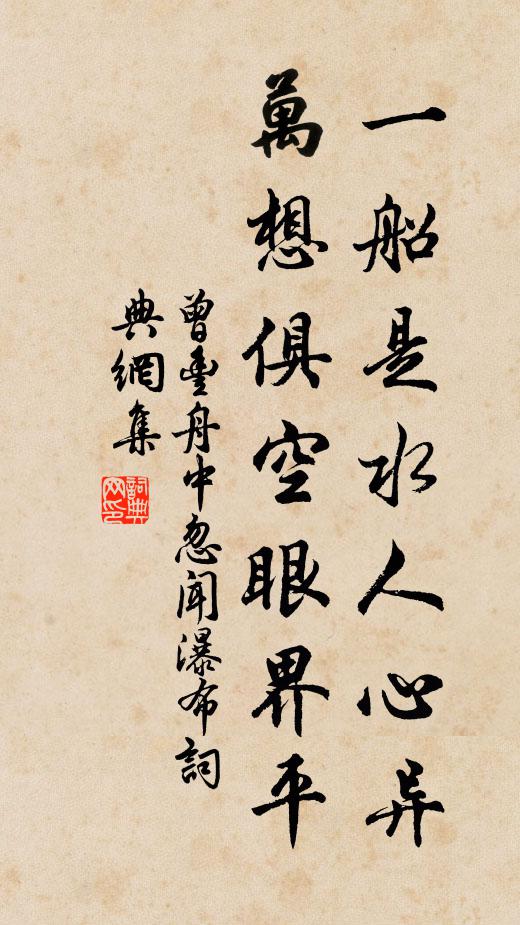 一船是水人心异
萬想俱空眼界平
曾豐舟中忽聞瀑布詞
典網集
詞典網印